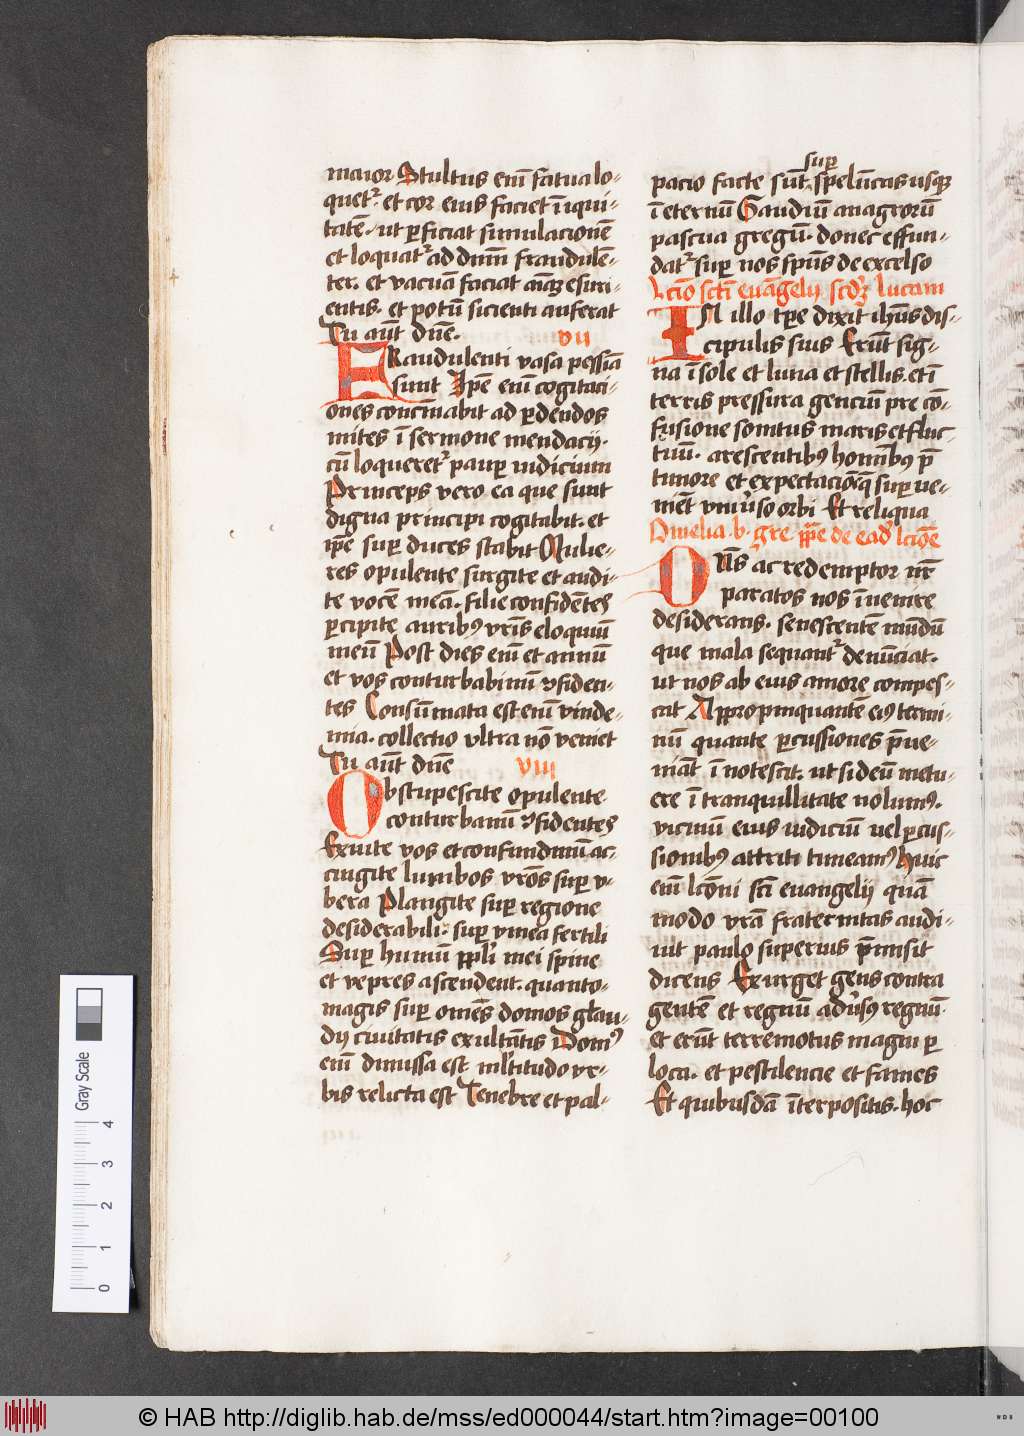 maior Stultus eni͂ fatua lo-
quet᷑ et cor eius faciet īiqui-
tatē ut ꝑficiat simulacionē
et loquat᷑ ad dnm̄ fraudulē-
ter. et vacuā faciat aīaꝫ esuri-
entis. et potū sicienti auferat
Tu aut̄ dn̄e. vii
FRaudulenti vasa pessīa
sunt Ip̄e enī cogitaci-
ones concīnabit ad ꝑdendos
mites ī sermone mendacij.
cū loqueret᷑ paup̱ iudicium
Princeps vero ea que sunt
digna principi cogitabit. et
ip̄e sup̱ duces stabit Mulie-
res opulente surgite et audi-
te vocē meā. filie confidētes
ꝑcipite auribꝰ vr̄is eloquiū
meū Post dies enī et annū
et vos conturbabimī ꝯfiden-
tes Consūmata est enī vinde-
mia. collectio ultra nō veniet
Tu aut̄ dn̄e viii
Obstupescite opulente
conturbamī ꝯfidentes
Exuite vos et confundimī ac-
cingite lumbos vr̄os sup̱ v-
bera Plangite sup̱ regione
desiderabili. sup̱ vinea fertili
Sup̱ humū ppl̄i mei spine
et vepres ascendent. quanto-
magis sup̱ omēs domos glau-
dij civitatis exultātis Domꝰ
enī dimissa est ml̄titudo vr-
bis relicta est Tenebre et pal-
pacio facte sūt sup̱ spelūcas usqꝫ
ī eternū Gaudiū onagrorū
pascua gregū. donec effun-
dat᷑ sup̱ nos sp̄us de excelso
Lc̄io sc̄ti evāgelij scdꝫ lucam
IN illo tp̱e dixit ih̄us dis-
cipulis suis Erūt sig-
na ī sole et luna et stellis. et ī
terris pressura genciū pre cō-
fusione sonitus maris et fluc-
tuū. arescentibꝰ hoīnibꝰ p̄
timore et expectacione q̄ sup̱ ve-
nient univ̄so orbi Et reliqua
Omelia. b. gre. pp̄e de ead̄ lc̄ōe
Dn̄s ac redemptor nr̄
paratos nos īvenire
desiderans. senescentē mūdū
que mala sequant᷑ denūciat.
ut nos ab eius amore compes-
cat Appropinquantē eiꝰ termi-
nū quante ꝑcussiones p̄ve-
niāt ī notescit. ut si deū metu-
ere ī tranquillitate nolumꝰ.
vicinū eius iudiciū vel ꝑcus-
sionibꝰ attriti timeamꝰ Huic
enī lc̄ōni sc̄ti evangelij quā
modo vr̄a fraternitas audi-
vit paulo superius p̄misit
dicens Exurget gens contra
gentē et regnū adv̄sꝰ regnū.
et erūt terremotus magni ꝑ
loca. et pestilencie et fames
Et quibusdā īterpositis. hoc
Gray Scale
0 1 2 3 4
© HAB http://diglib.hab.de/mss/ed000044/start.htm?image=00100